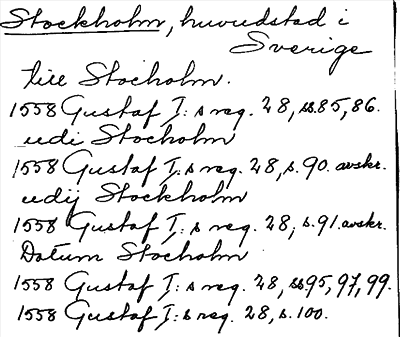 Stockholm, huvudstad i
Sverige
till Stocholm.
1558 Gustaf I: s reg. 28, ss. 85, 86.
udi Stocholm
1558 Gustaf I: s reg. 28, s. 90. avskr.
udij Stockholm
1558 Gustaf I: s reg. 28, s. 91. avskr.
Datum Stocholm
1558 Gustaf I: s reg. 28, ss 95, 97, 99.
1558 Gustaf I: s reg. 28, s. 100.